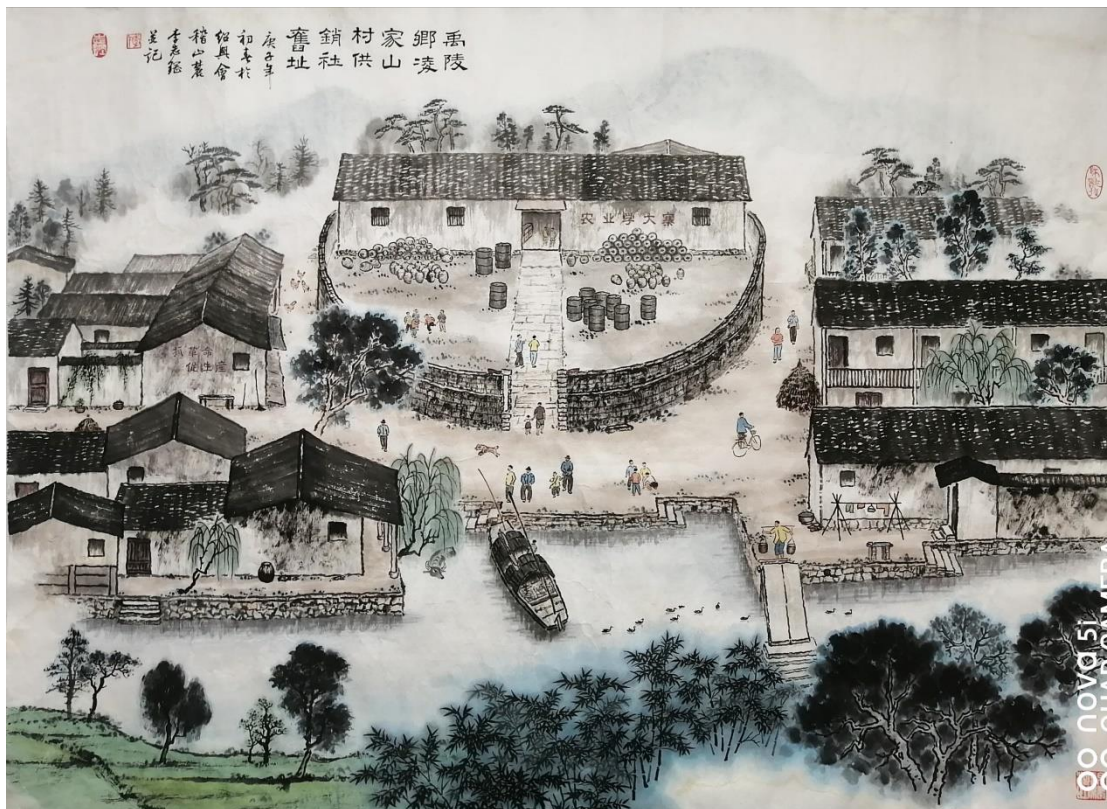 禹陵
鄉凌
家山
村供
銷社
舊址
庚子年
初春於
紹興會
稽山麓
李志強
並記
农业学大寨
抓革命
促生產
nova 5i
QUAD CAMERA